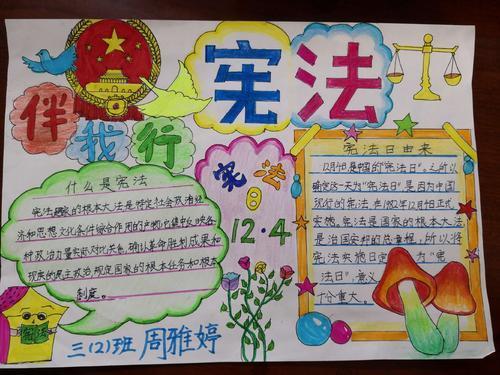 宪法
伴我行
什么是宪法
宪法是国家的根本大法是特定社会政治经
济和思想文化条件综合作用的产物它集中反映各
种政治力量实际对比关系,确认革命胜利成果和
现实的民主政治,规定国家的根本任务和根本
制度。
宪法
日
12·4
宪法日由来
12月4日是中国的"宪法日"之所以
确定这一天为"宪法日"是因为中国
现行的宪法在1982年12月4日正式
实施。宪法是国家的根本大法
是治国安邦的总章程,所以将
宪法实施日定为"宪
法日",意义
十分重大。
宪法
三(2)班 周雅婷